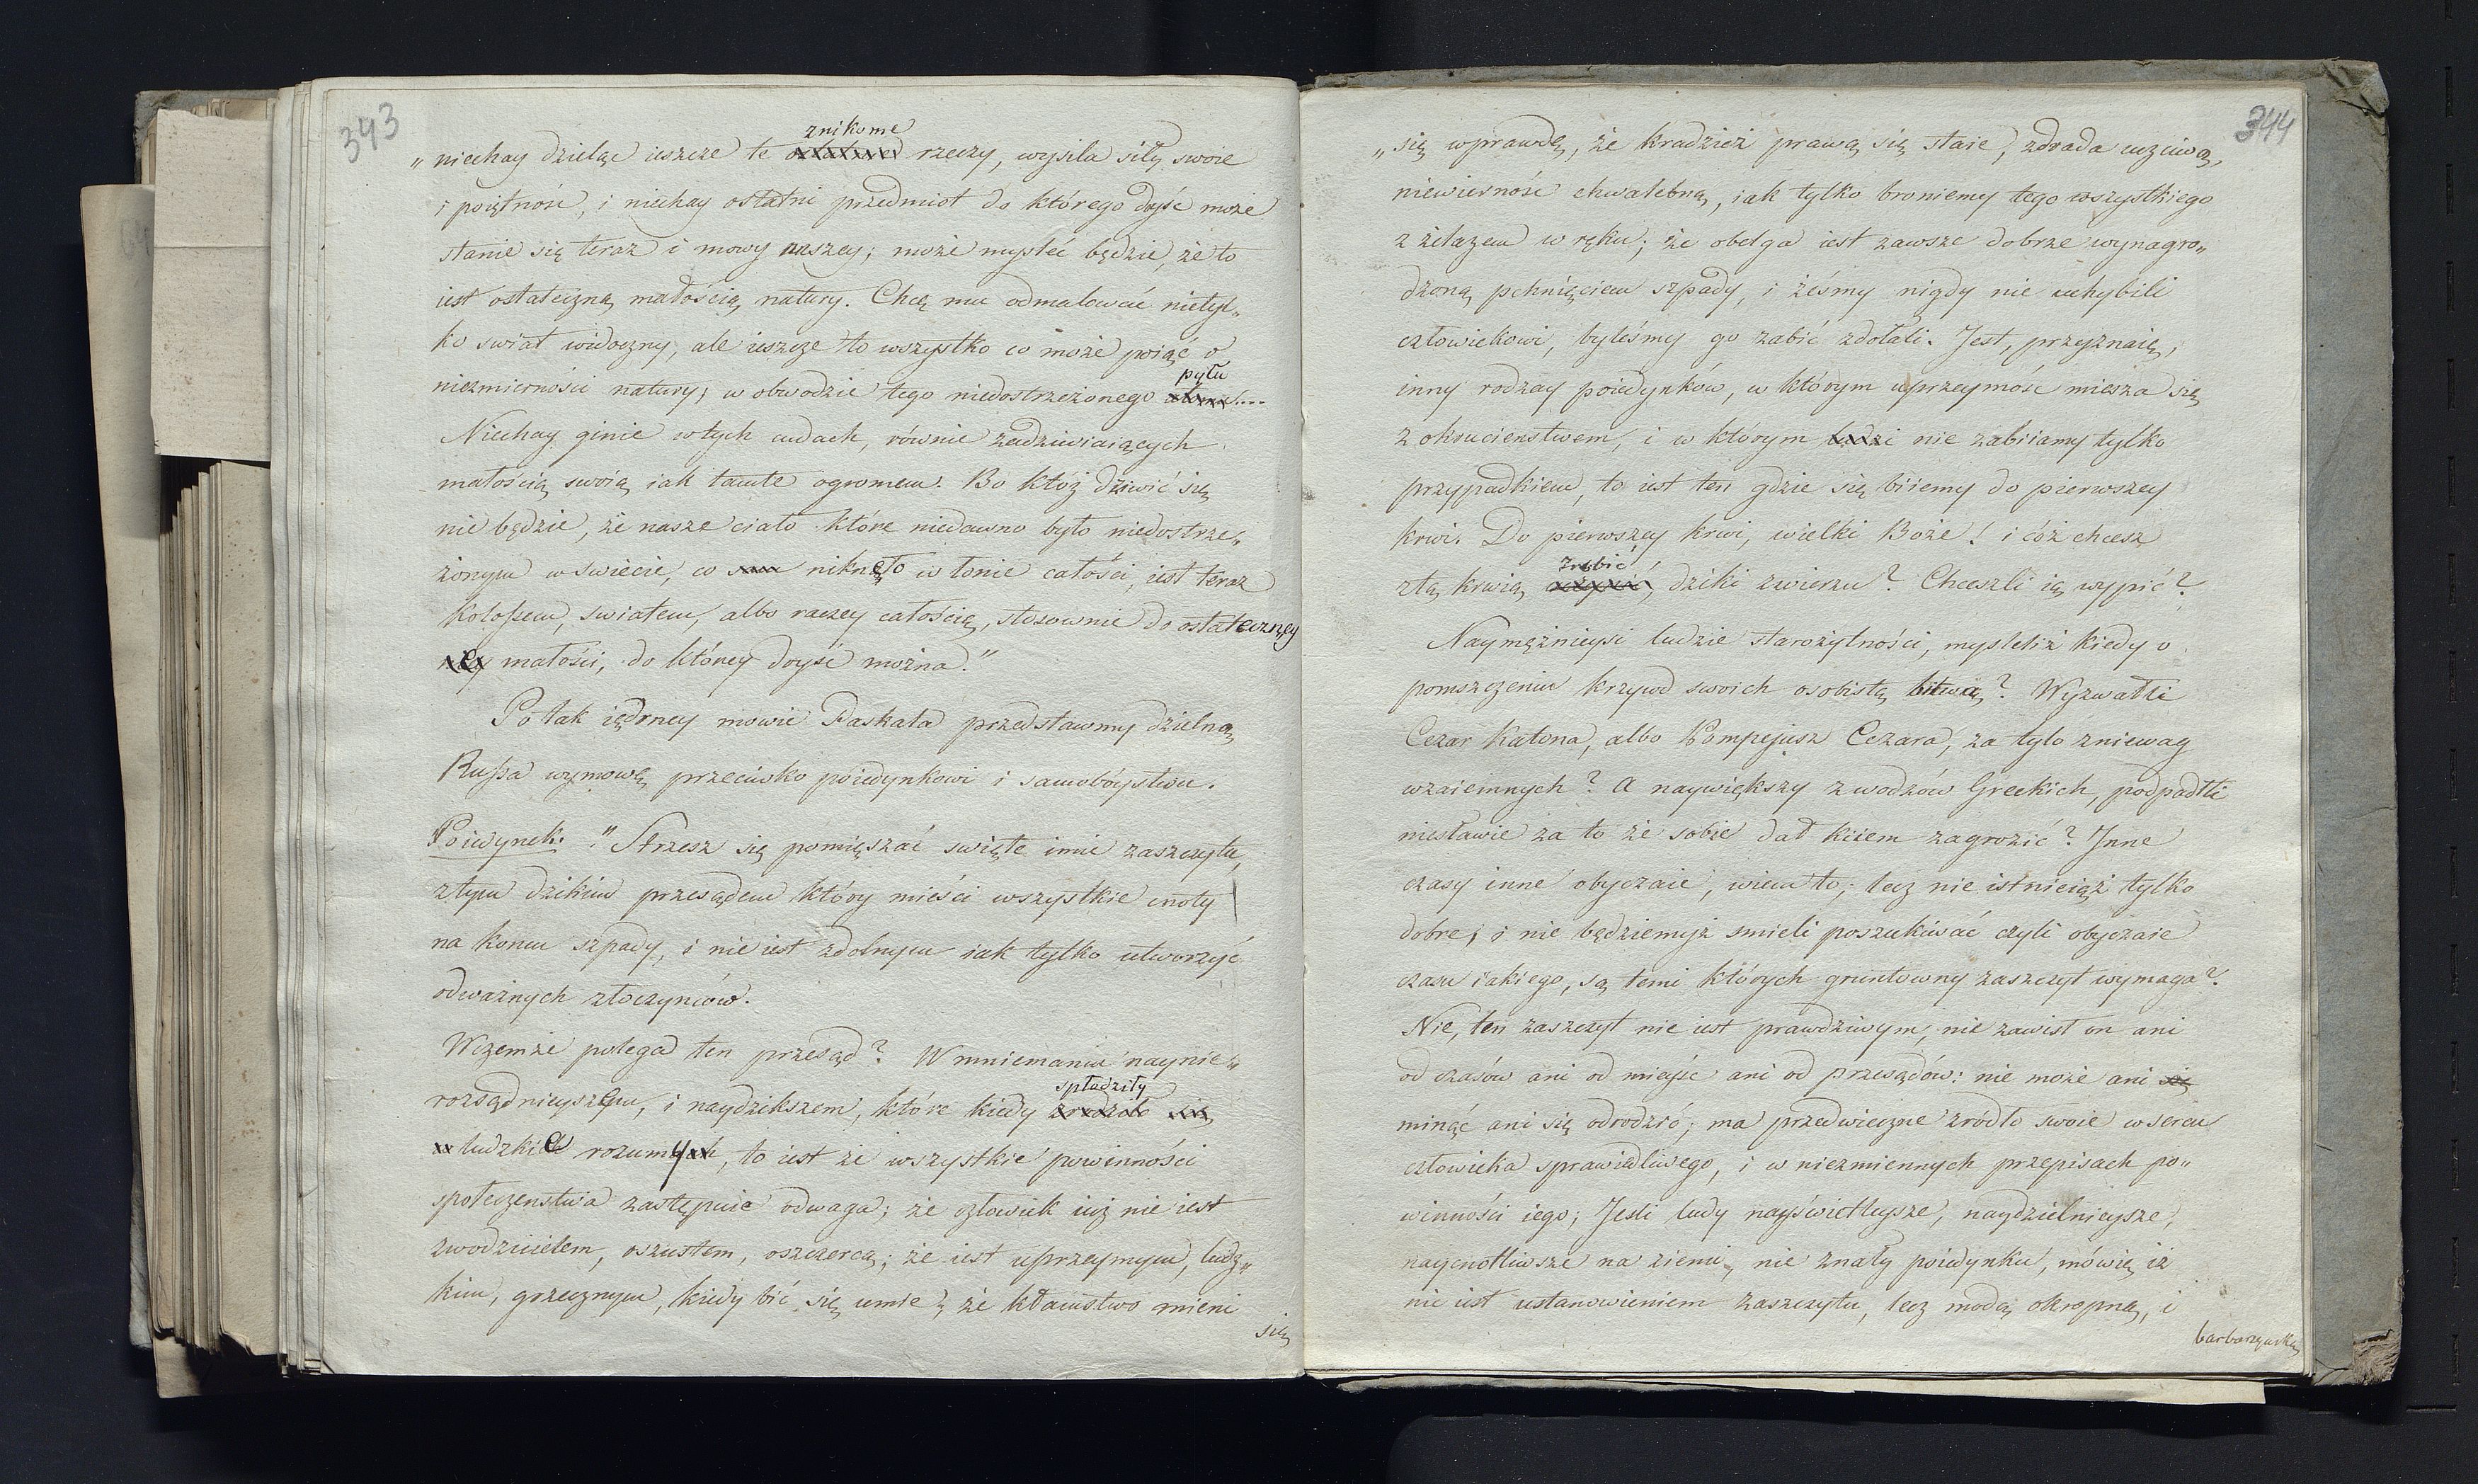 343
znikome
„niechay dzieląc ieszcze te rzeczy, wysila siły swoie
i poiętność, i niechay ostatni przedmiot do którego dojść może
stanie się teraz i mowy naszey; może mysleć będzie, że to
iest ostateczną małością natury. Chcę mu odmalować nietyl„
ko swiat widoczny, ale ieszcze to wszystko co może poiąć o
niezmierności natury, w obwodzie tego niedostrzeżonego pyłu....
Niechay ginie wtych cudach, równie zadziwiaiących
małością swoią iak tamte ogromem. Bo któż dziwić się
nie będzie, że nasze ciało które niedawno było niedostrze„
żonym w swiecie, co niknęło w łonie całości, iest teraz
kolossem, swiatem, albo raczey całością, stosownie do ostateczney
małości, do którey doyść można."
Po tak iędrney mowie Paskala przedstawmy dzielną
Russa wymowę przeciwko poiedynkowi i samobóystwu.
Poiedynek. "Strzesz się pomięszać swięte imie zaszczytu,
ztym dzikim przesądem który mieści wszystkie cnoty
na koncu szpady, i nie iest zdolnym iak tylko utworzyć
odważnych złoczyńców.
Wczemże polega ten przesąd? W mniemaniu naynie„
rozsądnieyszem, i naydzikszem, które kiedy spłodziły
ludzkie rozumy, to iest że wszystkie powinności
społeczenstwa zastępuie odwaga; że człowiek iuż nie iest
zwodzicielem, oszustem, oszczercą; że iest uprzeymym, ludz„
kim, grzecznym, kiedy bić się umie; że kłamstwo mieni
się
344
„się wprawdę, że kradzież prawą się staie, zdrada uczciwą,
niewierność chwalebną, iak tylko broniemy tego wszystkiego
z żelazem w ręku; że obelga iest zawsze dobrze wynagro„
dzoną pchnięciem szpady, i żeśmy nigdy nie uchybili
człowiekowi, byleśmy go zabić zdołali. Jest, przyznaię,
inny rodzay poiedynków, w którym uprzeymość miesza się
z okrucienstwem, i w którym ludzi nie zabiiamy tylko
przypadkiem, to iest ten gdzie się biiemy do pierwszey
krwi. Do pierwszey krwi, wielki Boże! i cóż chcesz
ztą krwią zrobić dziki zwierzu? Chceszli ią wypić?
Naymężnieysi ludzie starożytności, mysleliż kiedy o
pomszczeniu krzywd swoich osobistą bitwą? Wyzwałli
Cezar Katona, albo Pompejusz Cezara, za tylo zniewag
wzaiemnych? A naywiększy z wodzów Greckich, podpadłli
niesławie za to że sobie dał kiiem zagrozić? Inne
czasy inne obyczaie, wiem to; lecz nie istnieiąż tylko
dobre; i nie będziemyż smieli poszukiwać czyli obyczaie
czasu iakiego, są temi których gruntowny zaszczyt wymaga?
Nie, ten zaszczyt nie iest prawdziwym, nie zawisł on ani
od czasów ani od mieysc ani od przesądów: nie może ani
minąć ani się odrodzić; ma przedwieczne źródło swoie w sercu
człowieka sprawiedliwego, i w niezmiennych przepisach po„
winności iego; Jesli ludy nayświetleysze, naydzielnieysze,
naycnotliwsze na ziemi, nie znały poiedynku, mówię iż
nie iest ustanowieniem zaszczytu, lecz modą okropną, i
barbarzyńską